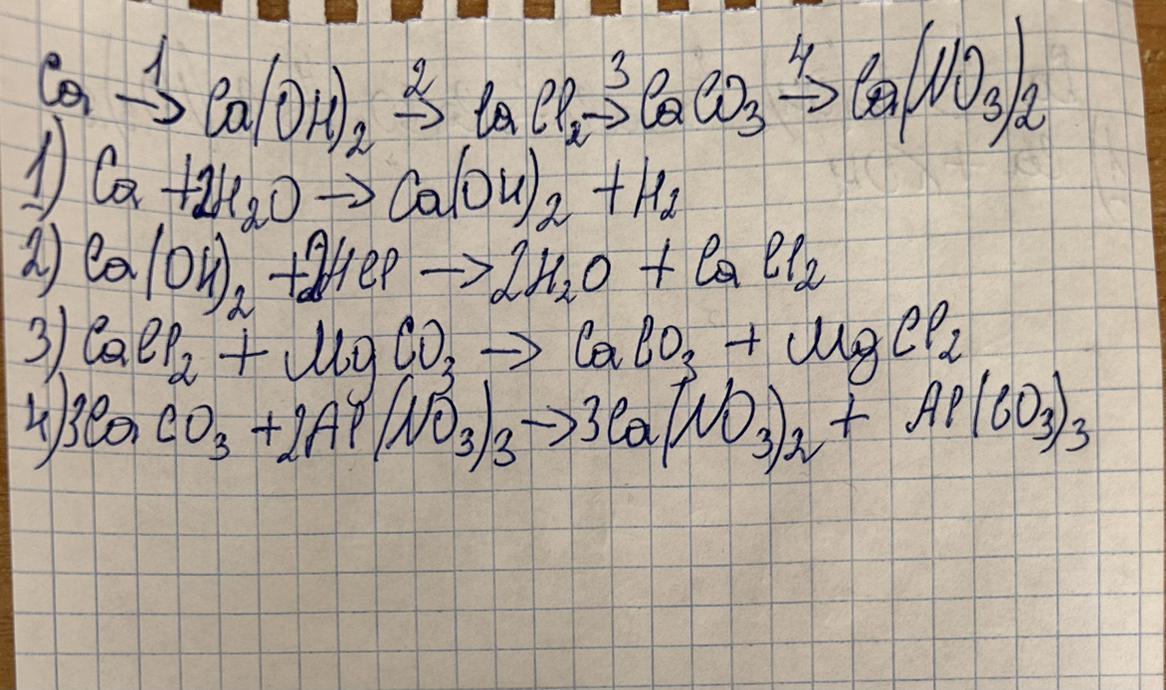 Ca →¹ Ca(OH)₂ →² CaCl₂ →³ CaCO₃ →⁴ Ca(NO₃)₂
1) Ca + 2H₂O → Ca(OH)₂ + H₂
2) Ca(OH)₂ + 2HCl → 2H₂O + CaCl₂
3) CaCl₂ + MgCO₃ → CaCO₃ + MgCl₂
4) 3CaCO₃ + 2Al(NO₃)₃ → 3Ca(NO₃)₂ + Al(CO₃)₃